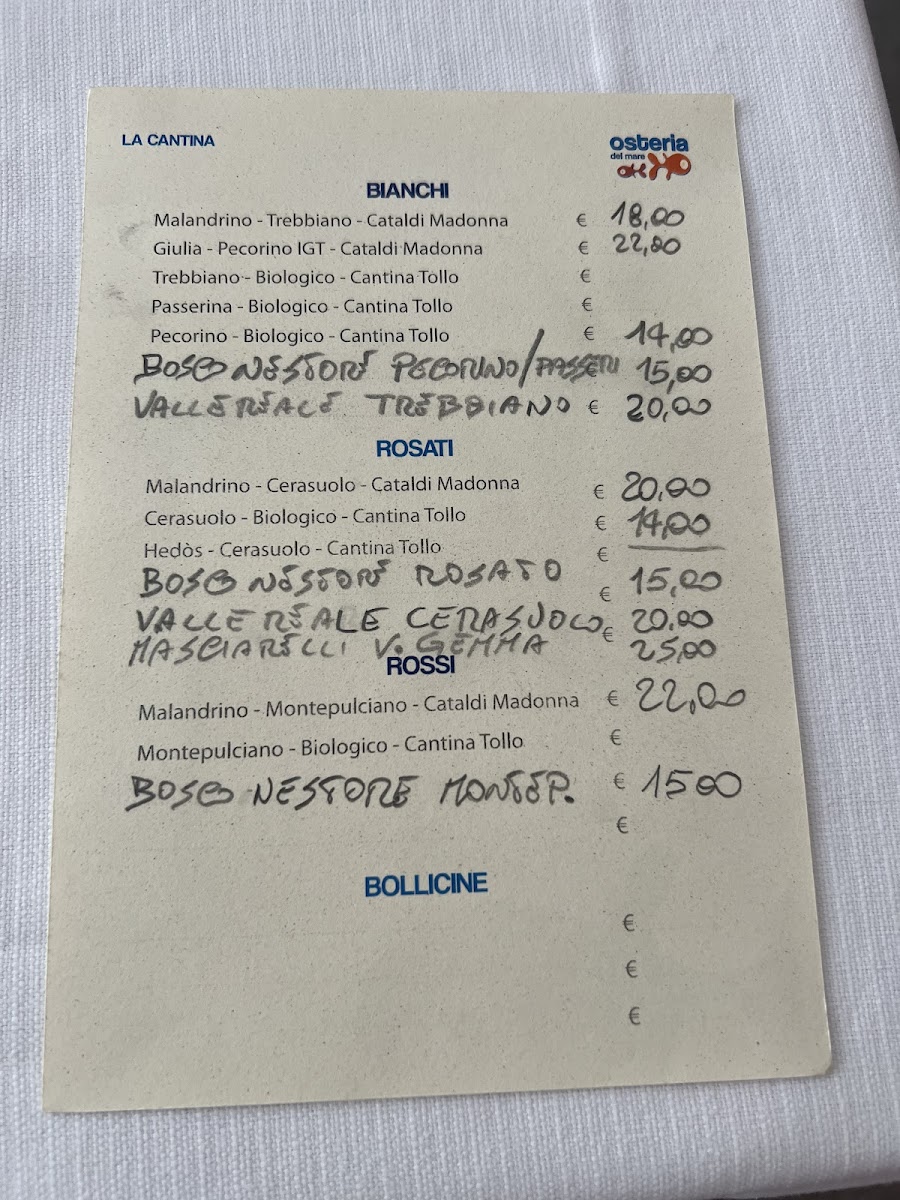 LA CANTINA
osteria
del mare
BIANCHI
Malandrino - Trebbiano - Cataldi Madonna € 18,00
Giulia - Pecorino IGT - Cataldi Madonna € 22,00
Trebbiano - Biologico - Cantina Tollo €
Passerina - Biologico - Cantina Tollo €
Pecorino - Biologico - Cantina Tollo € 14,00
BOSCO NESTORE PECORINO/PASSERI € 15,00
VALLEREALE TREBBIANO € 20,00
ROSATI
Malandrino - Cerasuolo - Cataldi Madonna € 20,00
Cerasuolo - Biologico - Cantina Tollo € 14,00
Hedòs - Cerasuolo - Cantina Tollo €
BOSCO NESTORE ROSATO € 15,00
VALLEREALE CERASUOLO € 20.00
MASCIARELLI V. GEMMA 25,00
ROSSI
Malandrino - Montepulciano - Cataldi Madonna € 22,00
Montepulciano - Biologico - Cantina Tollo €
BOSCO NESTORE MONTEP. € 1500
€
BOLLICINE
€
€
€